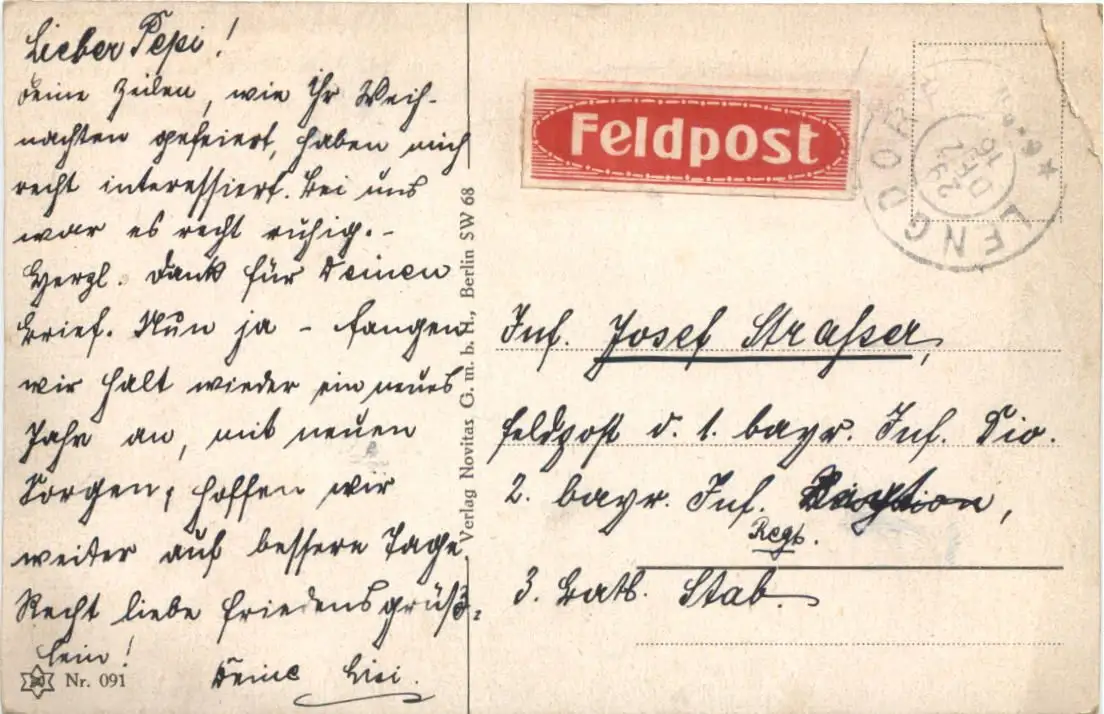 Lieber Pepi!
Deine Zeilen, wie Ihr Weih-
nachten gefeiert, haben mich
recht interessiert. Bei uns
war es recht ruhig.-
Herzl. Dank für Deinen
Brief. Nun ja - fangen
wir halt wieder ein neues
Jahr an, mit neuen
Sorgen, hoffen wir
weiter auf bessere Tage.
Recht liebe Friedensgrüß-
lein!
Deine Lisi.
Nr. 091
Verlag Novitas G. m. b. H., Berlin SW 68
Feldpost
LENGDORF
29
DEZ
16
Inf. Josef Strasser,
Feldpost d. 1. bayr. Inf. Div.
2. bayr. Inf.
Regt.
3. Batl. Stab.